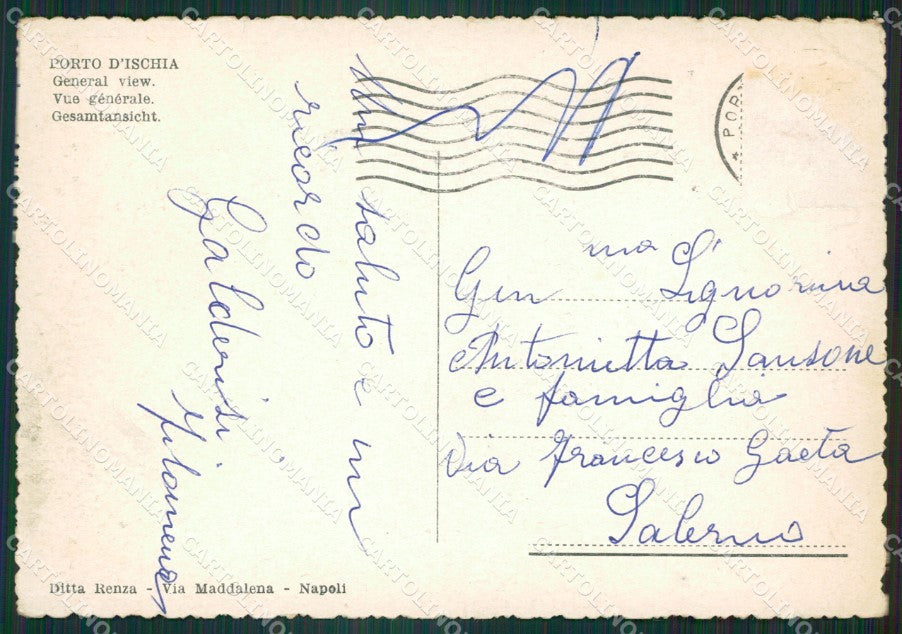 PORTO D'ISCHIA
General view.
Vue générale.
Gesamtansicht.
Un saluto e un
ricordo
Galderisi
Filomena
POR
Gen ma Signorina
Antonietta Sansone
e famiglia
Via Francesco Gaeta
Salerno
Ditta Renza - Via Maddalena - Napoli
CARTOLINOMANIA